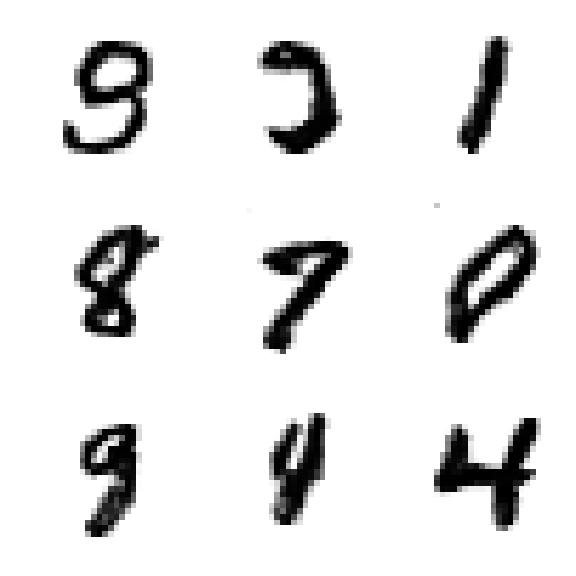 9 3 1
8 7 0
9 4 4